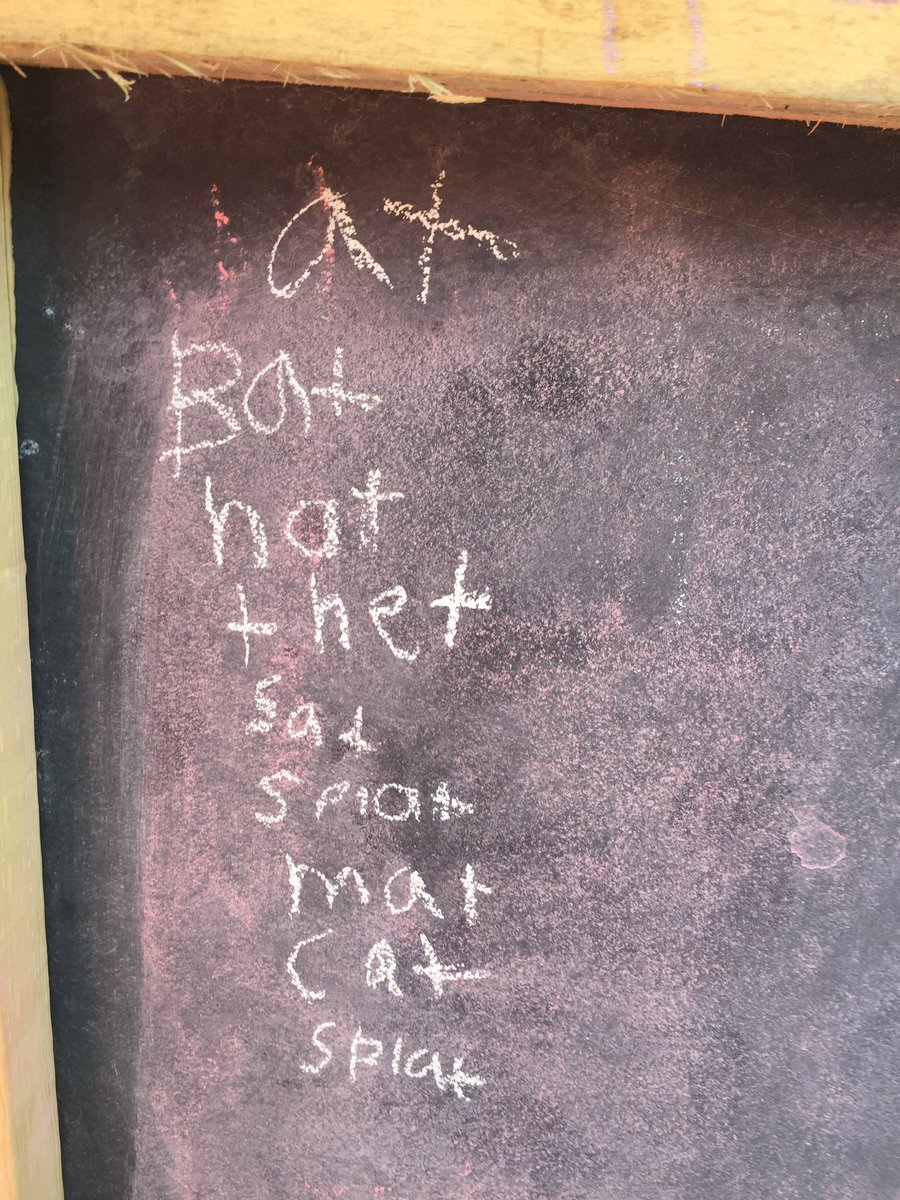 at
Bat
hat
thet
sat
splat
mat
cat
splat